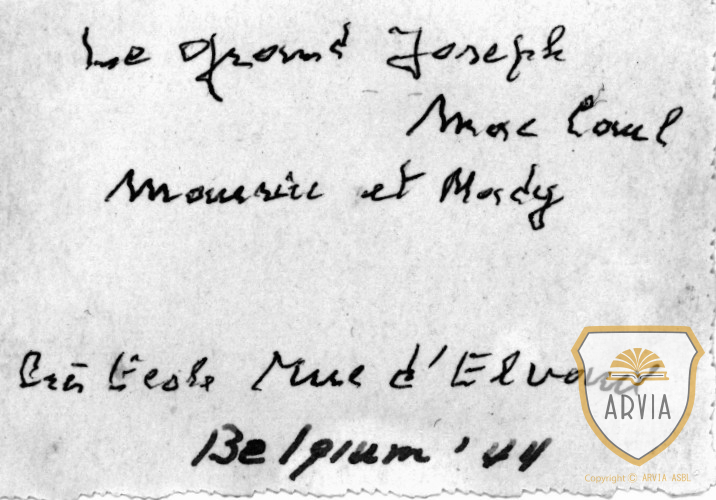 Le Grand Joseph
Mac
Maurice et Mady
École d'Elvang
Belgium '44
ARVIA
Copyright © ARVIA ASBL